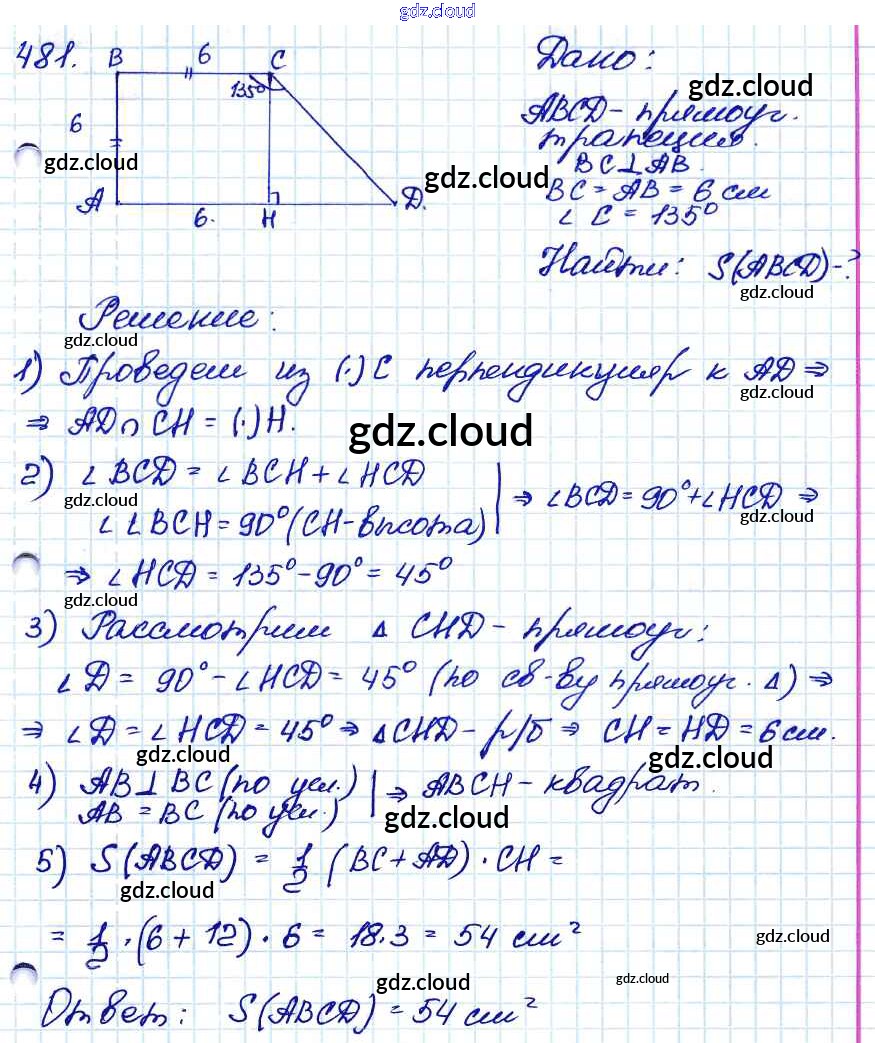 gdz.cloud
481. B 6 C
135°
6
A 6. H D.
Дано:
gdz.cloud
ABCD - прямоуг.
трапеция.
BC ⊥ AB.
BC = AB = 6 см
∠ C = 135°
gdz.cloud
gdz.cloud
Найти: S(ABCD) - ?
gdz.cloud
Решение:
gdz.cloud
1) Проведем из (·) C перпендикуляр к AD ⇒
gdz.cloud
gdz.cloud
⇒ AD ∩ CH = (·) H.
gdz.cloud
2) ∠ BCD = ∠ BCH + ∠ HCD
gdz.cloud
∠ ∠ BCH = 90° (CH - высота) | ⇒ ∠ BCD = 90° + ∠ HCD ⇒
gdz.cloud
⇒ ∠ HCD = 135° - 90° = 45°
gdz.cloud
3) Рассмотрим Δ CHD - прямоуг:
∠ D = 90° - ∠ HCD = 45° (по св-ву прямоуг. Δ) ⇒
⇒ ∠ D = ∠ HCD = 45° ⇒ Δ CHD - р/б ⇒ CH = HD = 6 см.
gdz.cloud
gdz.cloud
4) AB ⊥ BC (по усл.)
AB = BC (по усл.) | ⇒ ABCH - квадрат.
gdz.cloud
5) S(ABCD) = 1/2 (BC + AD) · CH =
gdz.cloud
= 1/2 · (6 + 12) · 6 = 18 · 3 = 54 см²
gdz.cloud
gdz.cloud
gdz.cloud
Ответ: S(ABCD) = 54 см²